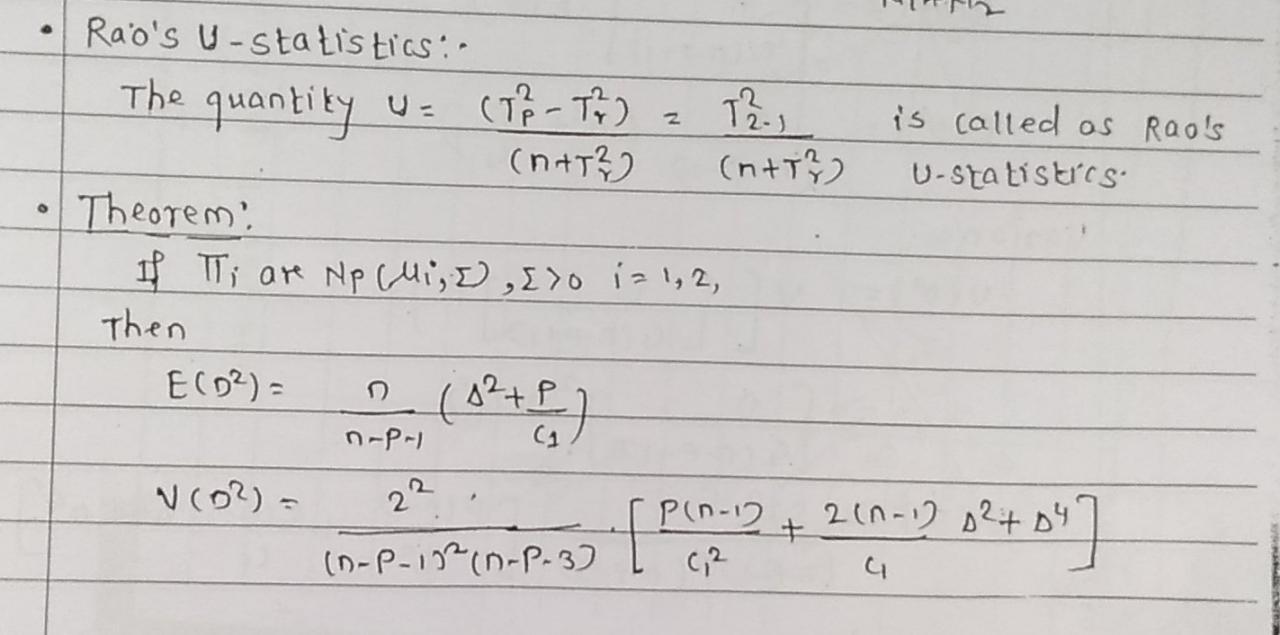 • Rao's U-statistics:-
The quantity U = (T²p - T²r) / (n+T²r) = T²2.1 / (n+T²r) is called as Rao's U-statistics.
• Theorem:
If Πi are Np(μi, Σ), Σ>0 i=1,2,
Then
E(D²) = n / (n-p-1) (Δ² + p/c1)
V(D²) = 2² / (n-p-1)²(n-p-3) · [p(n-1)/c1² + 2(n-1)/c1 Δ² + Δ⁴]